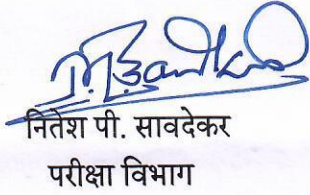 नितेश पी. सावदेकर
परीक्षा विभाग